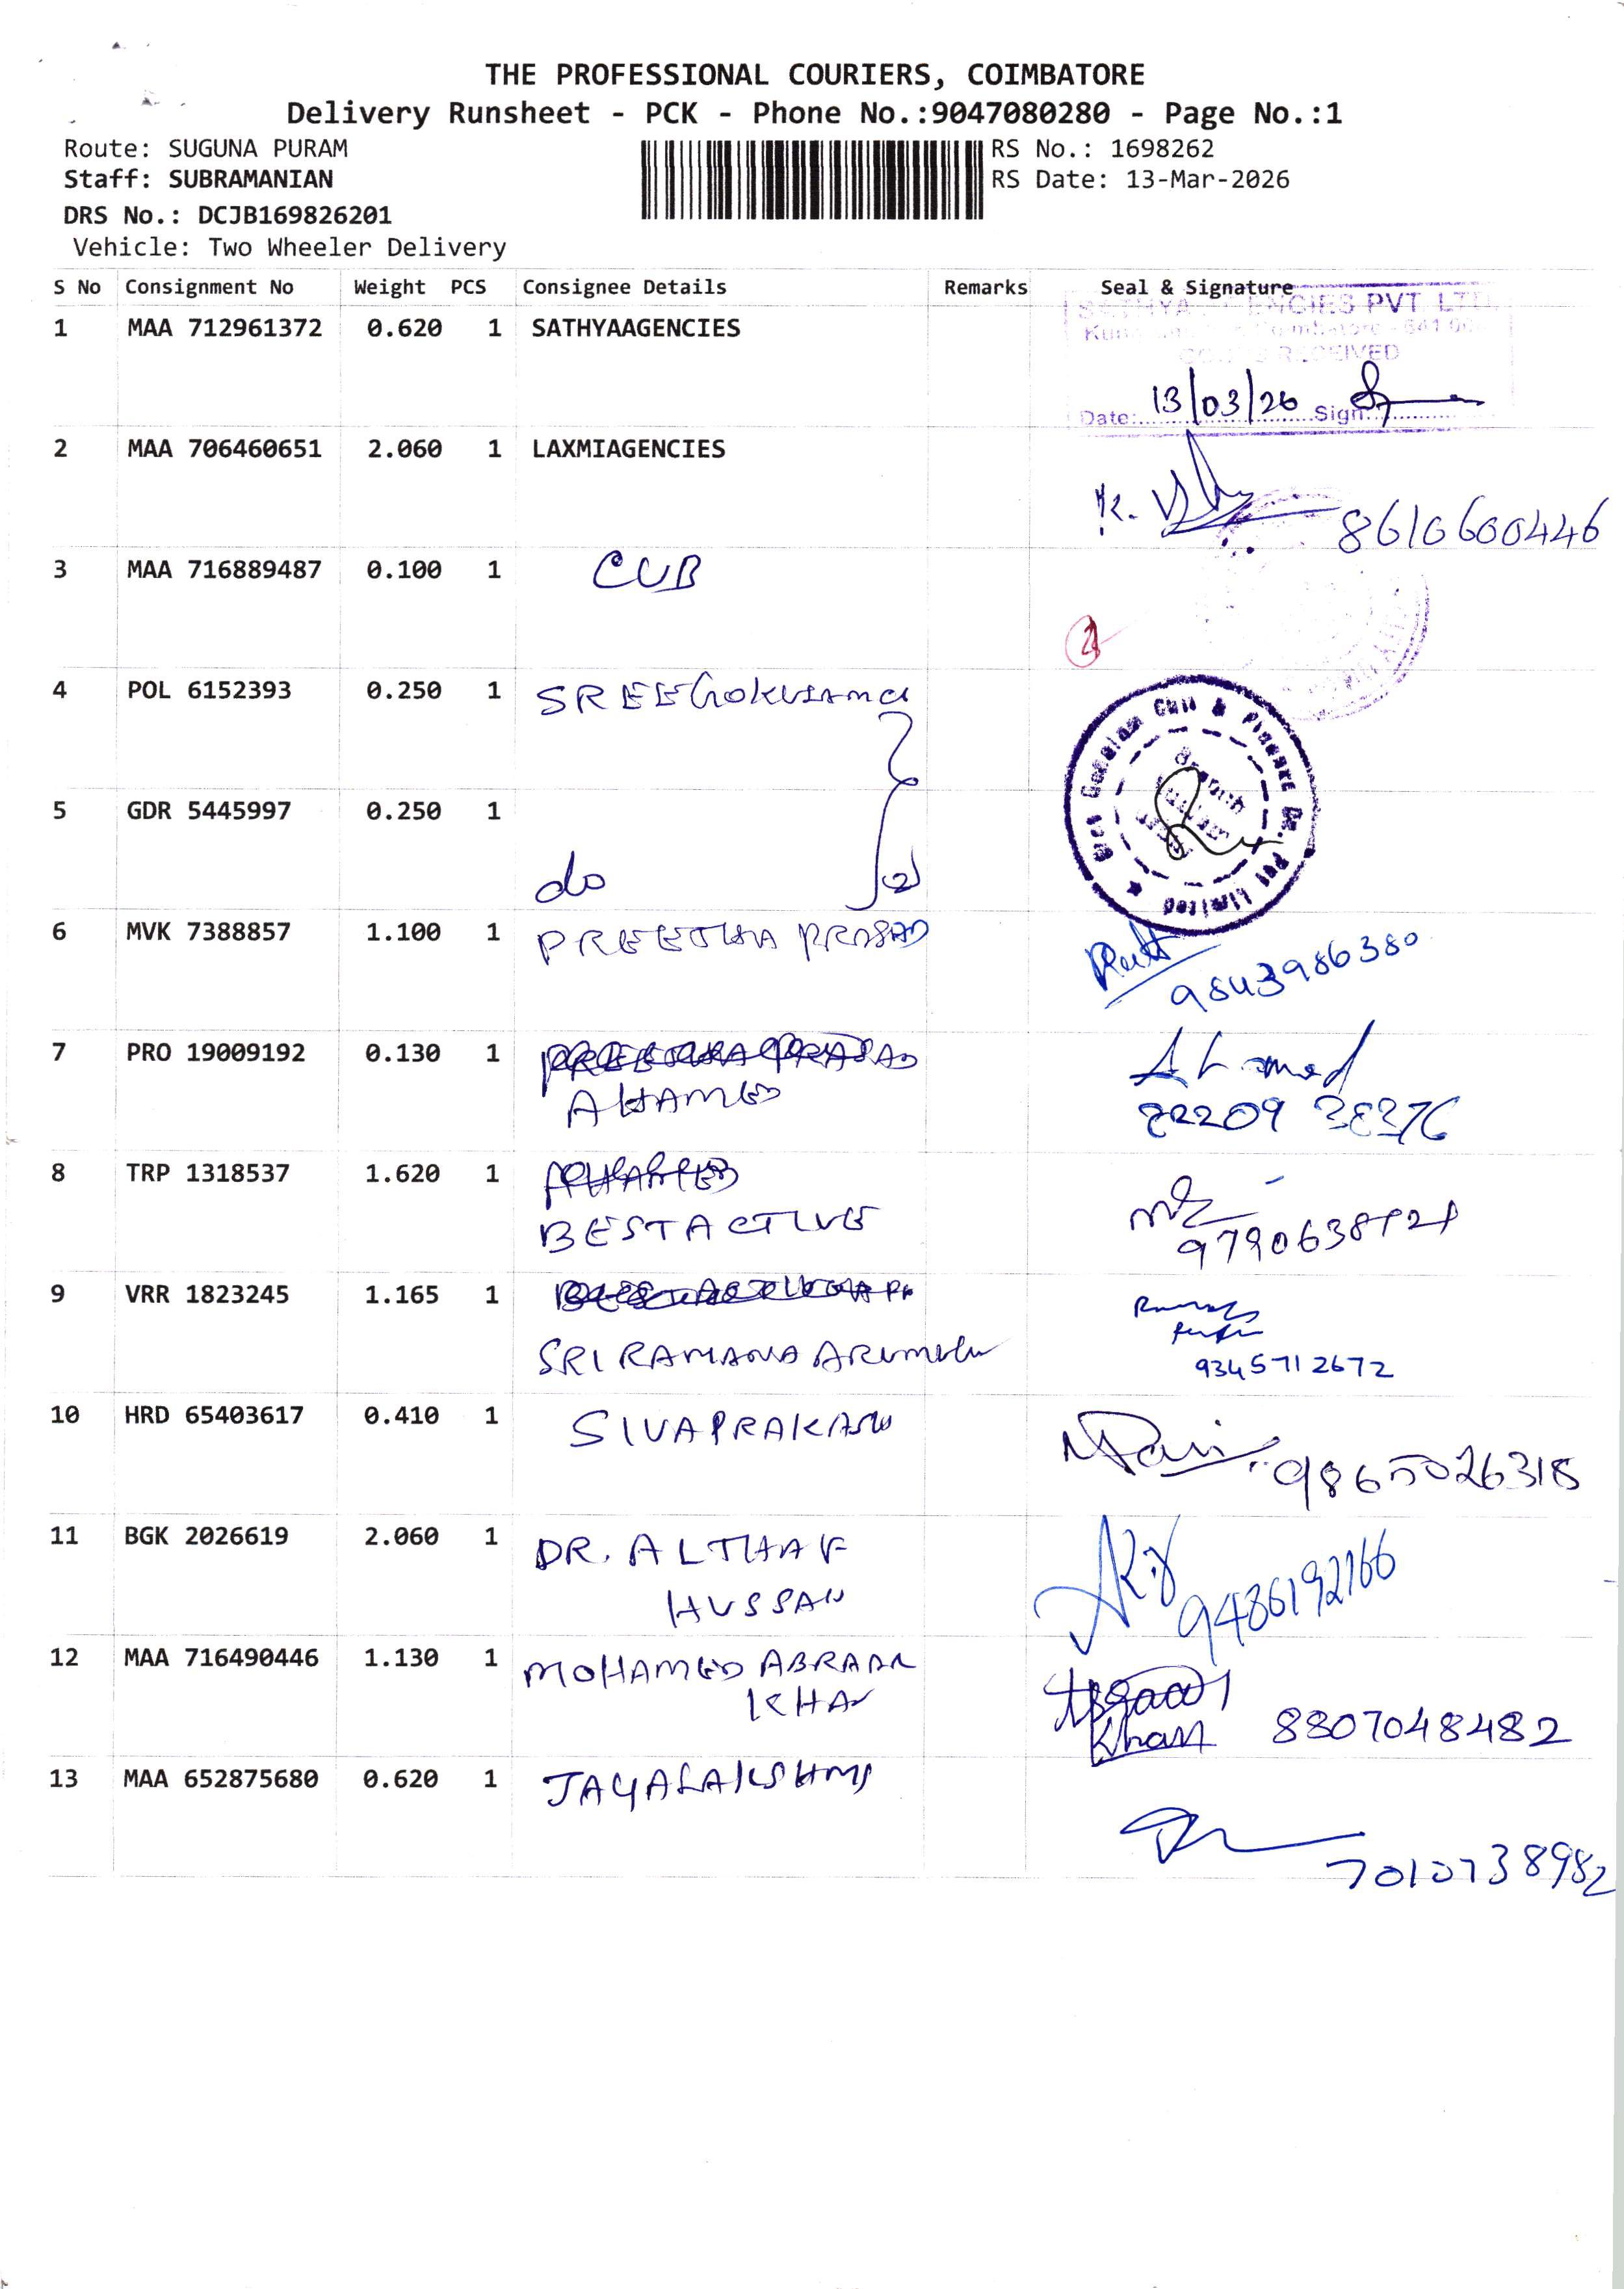 THE PROFESSIONAL COURIERS, COIMBATORE
Delivery Runsheet - PCK - Phone No.:9047080280 - Page No.:1
Route: SUGUNA PURAM RS No.: 1698262
Staff: SUBRAMANIAN RS Date: 13-Mar-2026
DRS No.: DCJB169826201
Vehicle: Two Wheeler Delivery
S No Consignment No Weight PCS Consignee Details Remarks Seal & Signature
PVT LTD
1 MAA 712961372 0.620 1 SATHYAAGENCIES
RECEIVED
Date: 13/03/26 Sign:
2 MAA 706460651 2.060 1 LAXMIAGENCIES
K. 8610600446
3 MAA 716889487 0.100 1 CUB
4 POL 6152393 0.250 1 SREE Gokulamcl
Sree Gokulam Chit & Finance Co. Pvt Limited
Branch
5 GDR 5445997 0.250 1
do (2)
6 MVK 7388857 1.100 1 PREETHA PRASAD
9843986380
7 PRO 19009192 0.130 1
AHAMED Ahamed
8 TRP 1318537 1.620 1
BESTACTIVE
9 VRR 1823245 1.165 1
SRI RAMANA
9345712672
10 HRD 65403617 0.410 1 SIVAPRAKASH
9865026318
11 BGK 2026619 2.060 1 DR. ALTHAF
HUSSAN 9486192166
12 MAA 716490446 1.130 1 MOHAMED ABRAAR
KHAN Khan 8807048482
13 MAA 652875680 0.620 1 JAYALAKSHMI
7010738982